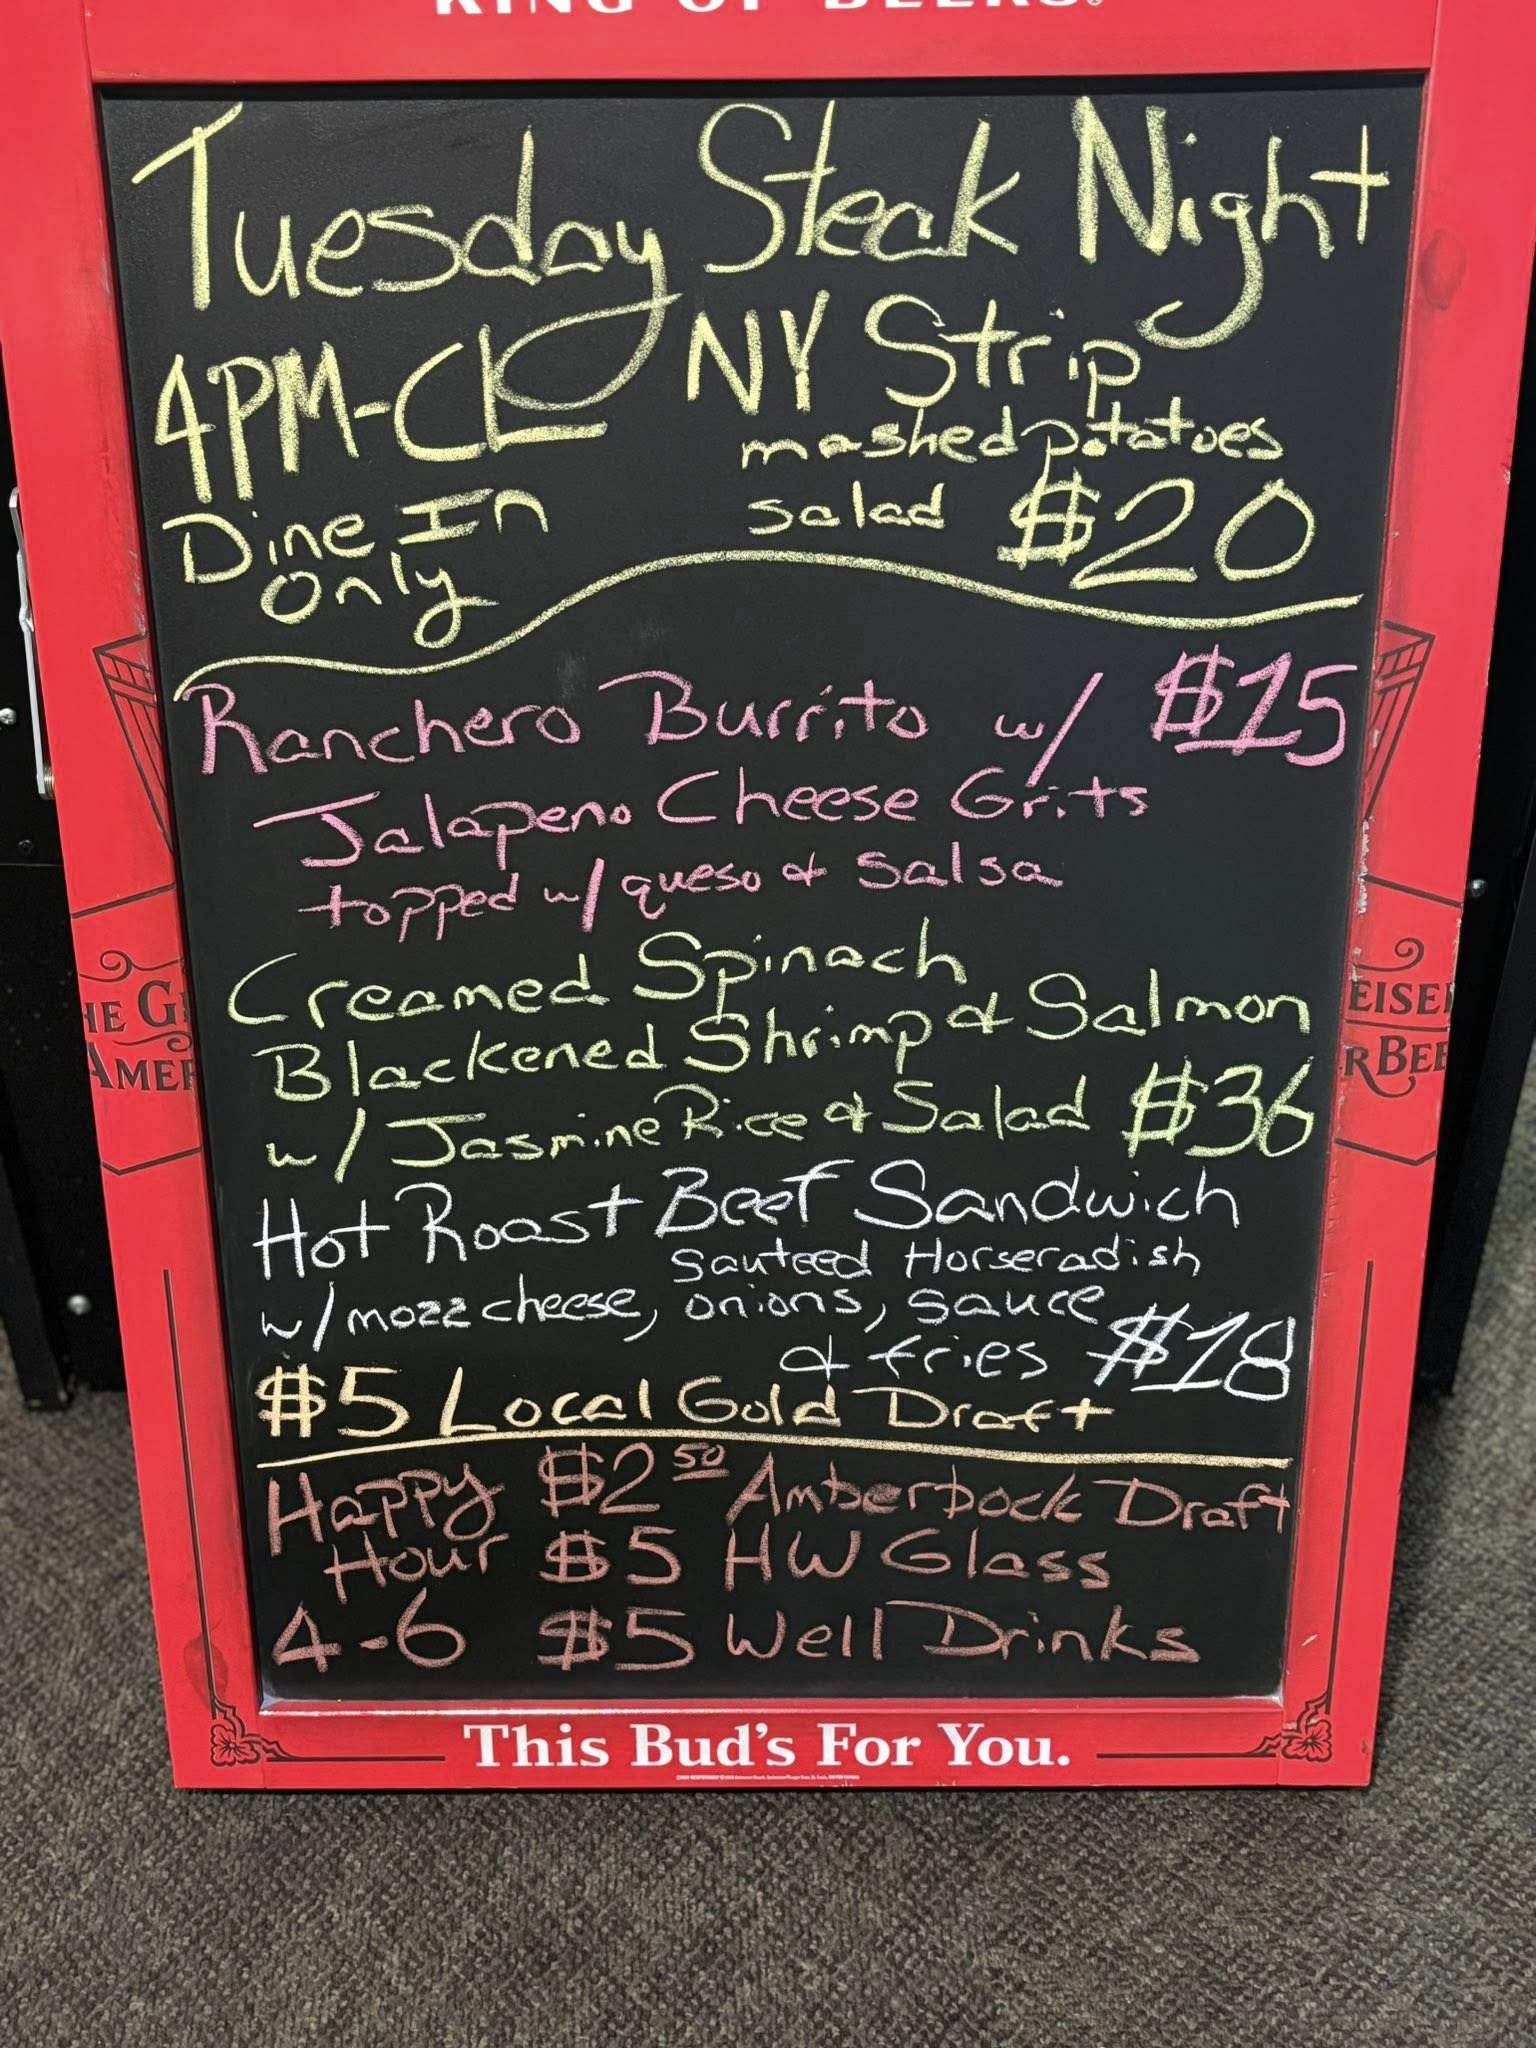 KING OF BEERS®
Tuesday Steak Night
4PM-CL NY Strip
mashed potatoes
Dine In salad $20
Only
Ranchero Burrito w/ $15
Jalapeno Cheese Grits
topped w/ queso & salsa
Creamed Spinach
Blackened Shrimp & Salmon
w/ Jasmine Rice & Salad $36
Hot Roast Beef Sandwich
sauteed Horseradish
w/ mozz cheese, onions, sauce
& fries $18
$5 Local Gold Draft
Happy $2 50 Amberbock Draft
Hour $5 HW Glass
4-6 $5 Well Drinks
HE G
AMER
EISE
R BEE
This Bud's For You.